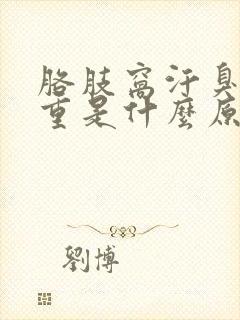 胳肢窩汗臭
重是什麼原
劉博